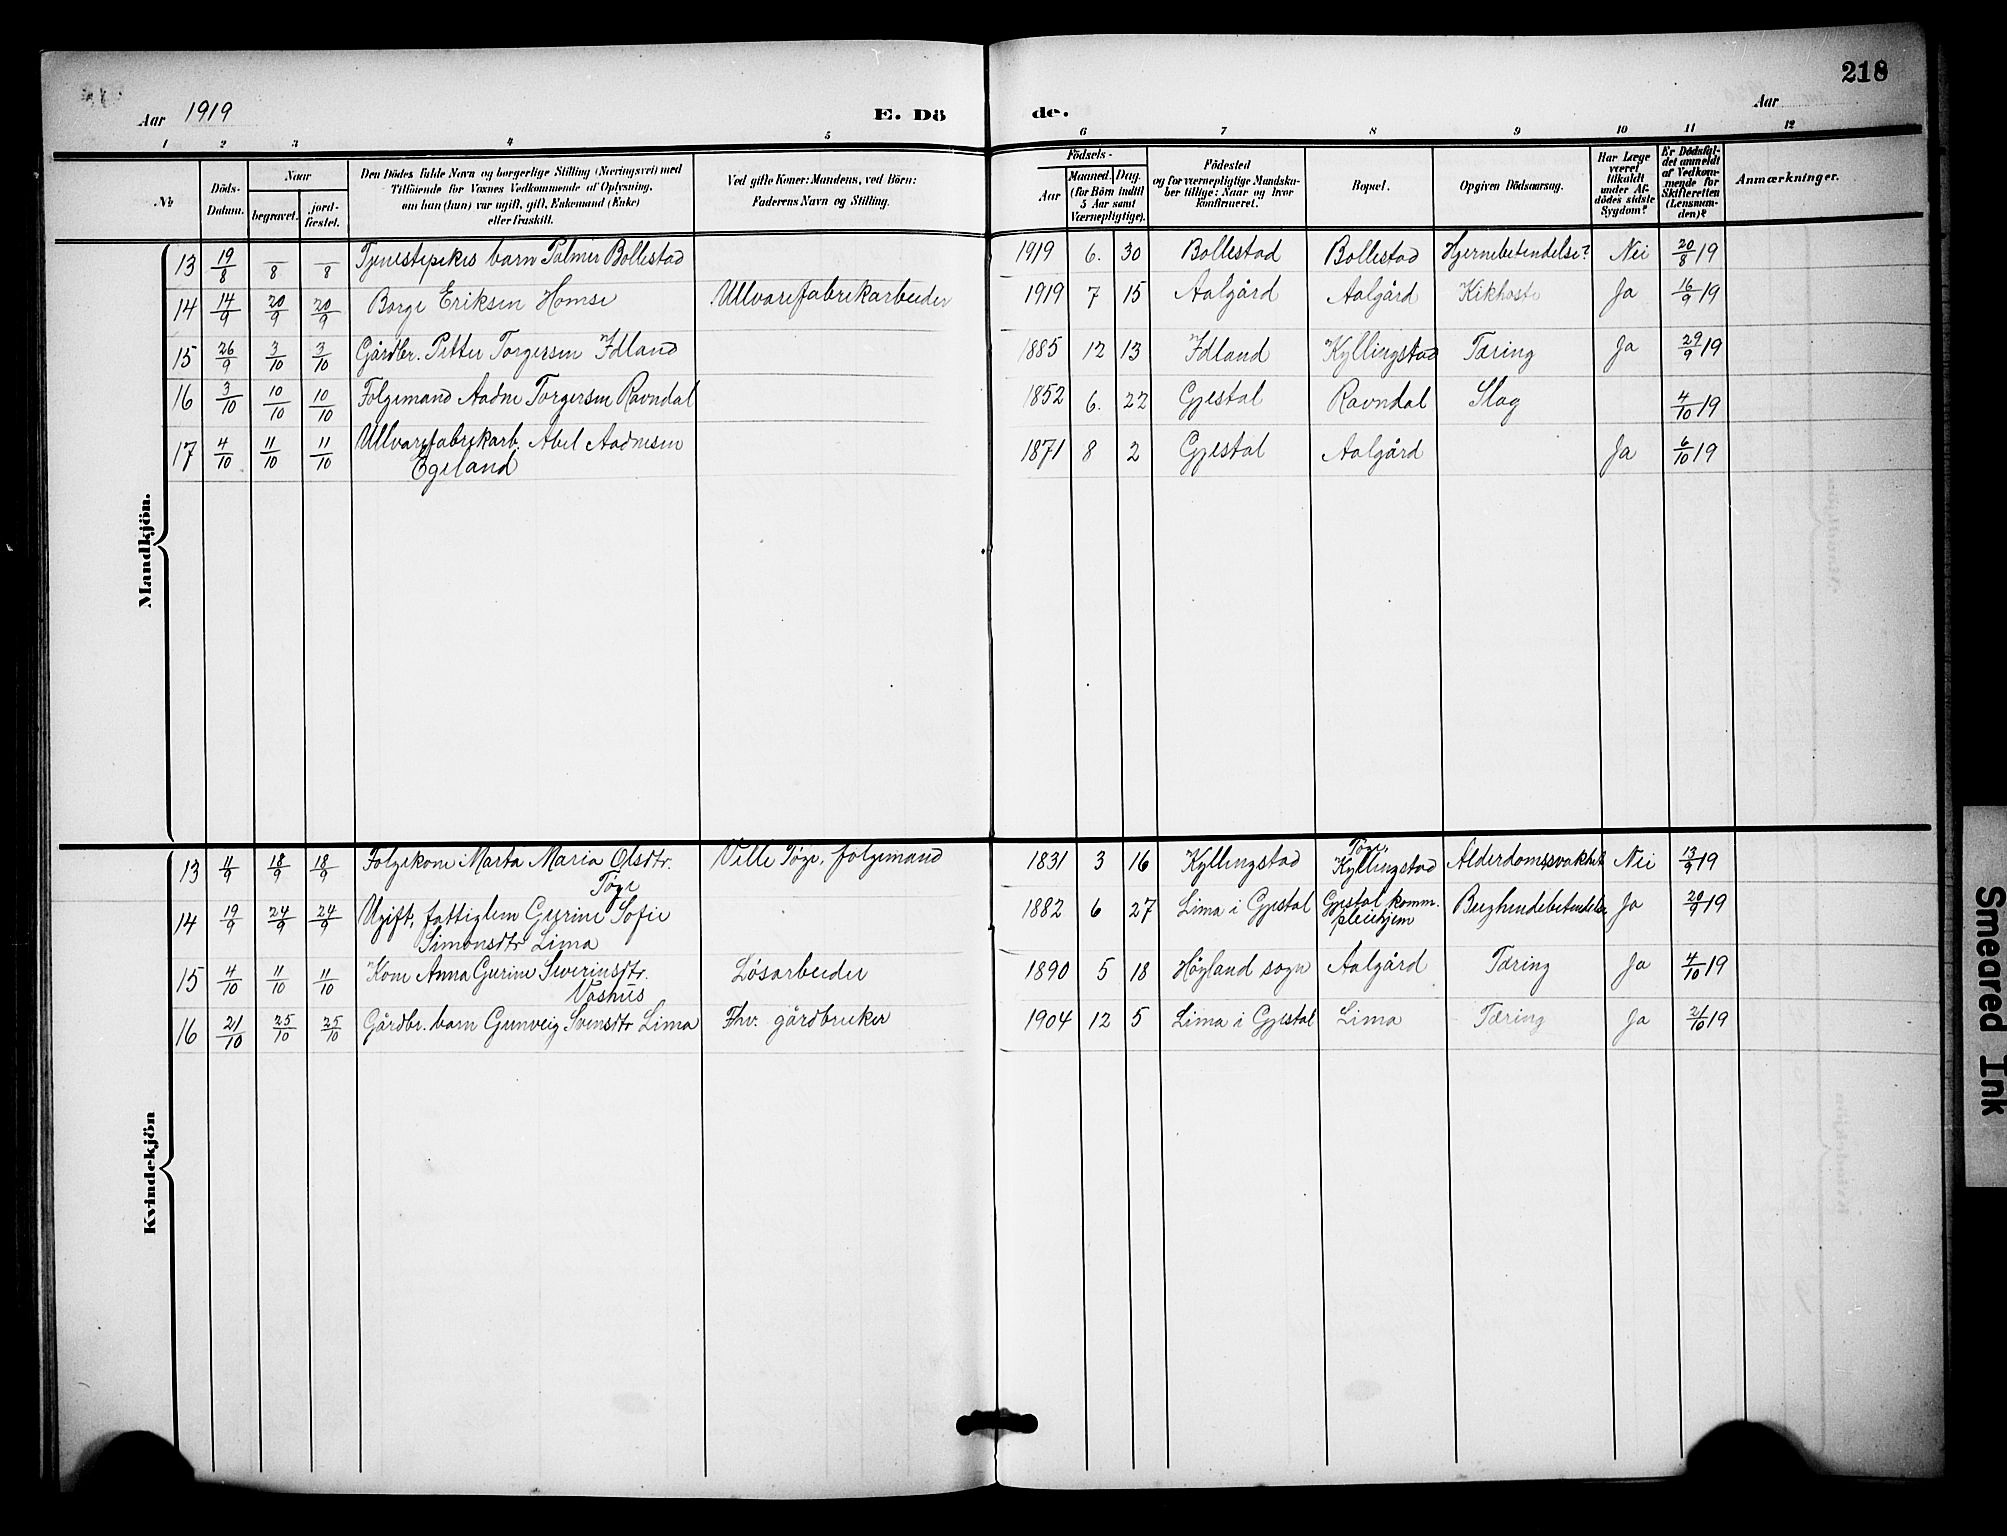 218
Aar 1919 E. Dö de. Aar
1 2 3 4 5 6 7 8 9 10 11 12
№
Döds-Datum.
Naar
begravet.
jord-fæstet.
Den Dödes fulde Navn og borgerlige Stilling (Næringsvei) med
Tilföiende for Voxnes Vedkommende af Oplysning,
om han (hun) var ugift, gift, Enkemand (Enke)
eller fraskilt.
Ved gifte Koner: Mandens, ved Börn:
Faderens Navn og Stilling.
Födsels-
Aar
Maaned. Dag.
(for Börn indtil
5 Aar samt
Værnepligtige).
Födested
og for værnepligtige Mandska-
ber tillige: Naar og hvor
konfirmeret.
Bopæl.
Opgiven Dödsaarsag.
Har Læge
været
tilkaldt
under Af-
dödes sidste
Sygdom?
Er Dödsfal-
det anmeldt
af Vedkom-
mende for
Skifteretten
(Lensman-
den)?
Anmærkninger.
Mandkjön.
13 19/8 –/8 –/8 Tjenestepikes barn Palmer Bollestad 1919 6. 30 Bollestad Bollestad Hjernebetendelse? Nei 20/8 19
14 14/9 20/9 20/9 Borge Eriksen Homse Ullvarefabrikarbeider 1919 7 15 Aalgård Aalgård Kikhoste Ja 16/9 19
15 26/9 3/10 3/10 Gårdbr. Petter Torgersen Idland 1885 12 13 Idland Kyllingstad Tæring Ja 29/9 19
16 3/10 10/10 10/10 Folgemand Aadne Torgersen Ravndal 1852 6. 22 Gjestal Ravndal Slag 4/10 19
17 4/10 11/10 11/10 Ullvarefabrikarb. Abel Aadnesen 1871 8 2 Gjestal Aalgård Ja 6/10 19
Egeland
Kvindekjön
13 11/9 18/9 18/9 Folgekone Marta Maria Olsdtr. Ville Tøge, folgemand 1831 3 16 Kyllingstad Tøge, Kyllingstad Alderdomssvakhet Nei 13/9 19
Tøge
14 19/9 24/9 24/9 Ugift, fattiglem Gurine Sofie 1882 6 27 Lima i Gjestal Gjestal komm. pleiehjem Ja 20/9 19
Simonsdtr Lima
15 4/10 11/10 11/10 Kone Anna Gurine Severinsdtr. Løsarbeider 1890 5 18 Høyland sogn Aalgård Tæring Ja 4/10 19
Våshus
16 21/10 25/10 25/10 Gårdbr. barn Gunveig Svensdtr Lima Fhv. gårdbruker 1904 12 5 Lima i Gjestal Lima Tæring Ja 21/10 19
Smeared Ink